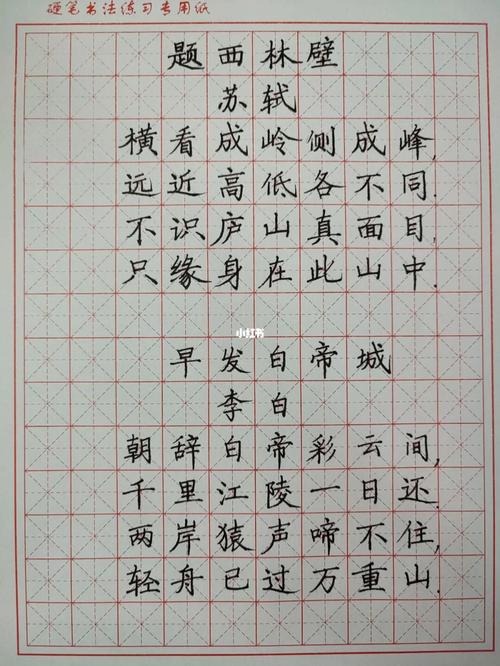 硬笔书法练习专用纸
题西林壁
苏轼
横看成岭侧成峰,
远近高低各不同.
不识庐山真面目,
只缘身在此山中.
小红书
早发白帝城
李白
朝辞白帝彩云间,
千里江陵一日还.
两岸猿声啼不住,
轻舟已过万重山.